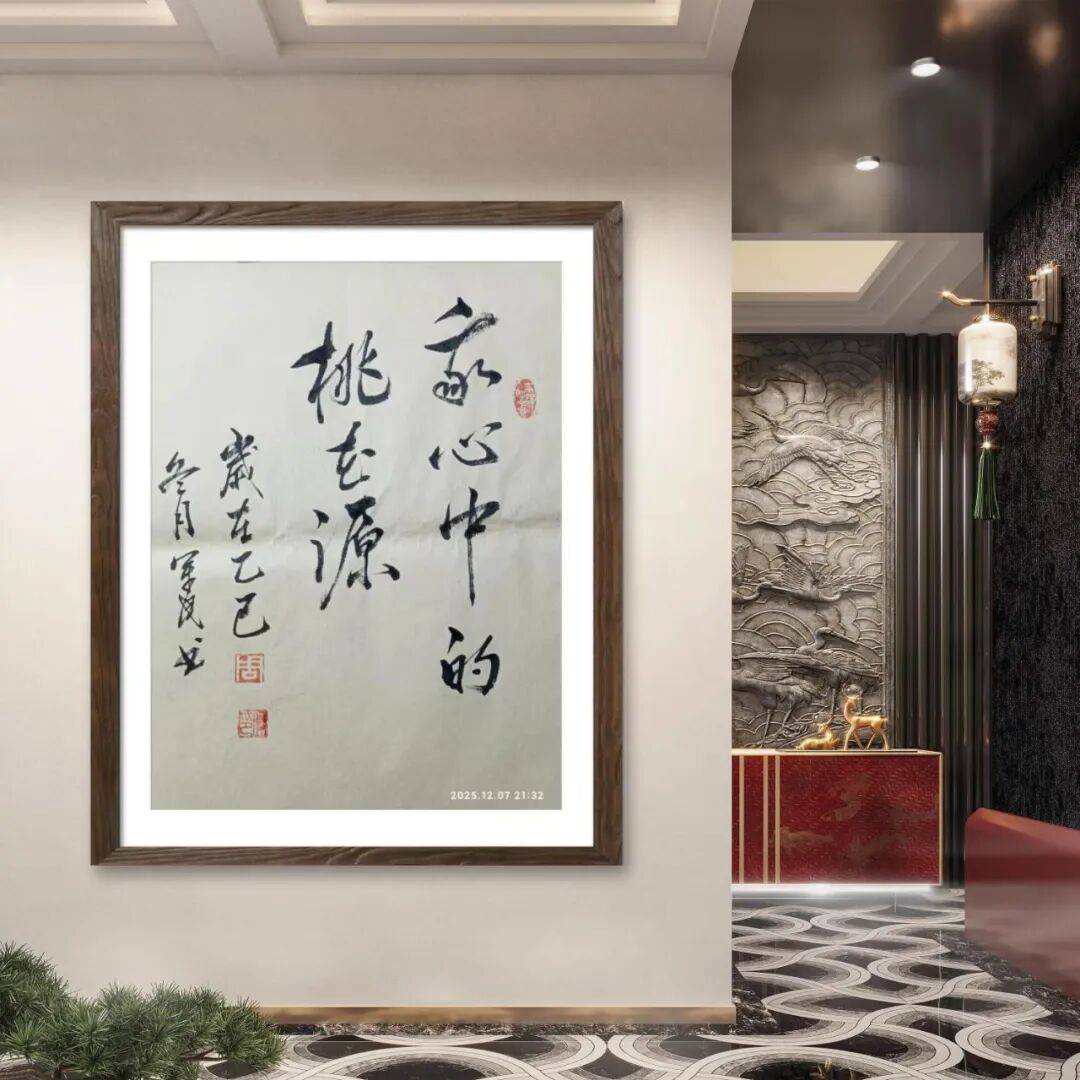 我心中的
桃花源
歲在乙巳
冬月 书
周
2025.12.07 21:32